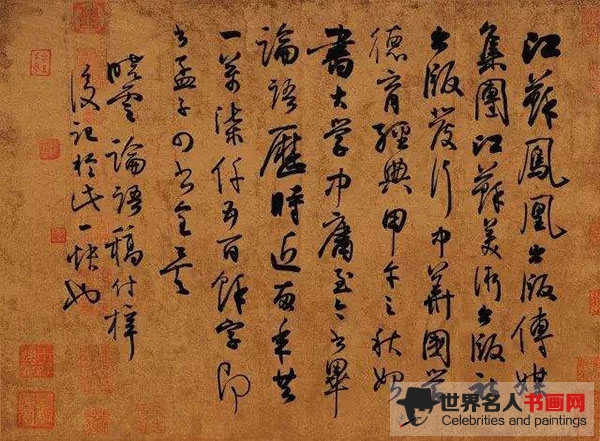 江蘇鳳凰出版傳媒
集團江蘇美術出版社
出版發行中華國学
德育經典甲午之秋始
書大学中庸至今书畢
論語歷時近两年共
一萬柒仟五百餘字即
书孟子四书全矣
晓雲論語稿付梓
後記於此一快也
世界名人书画网
Celebrities and paintings